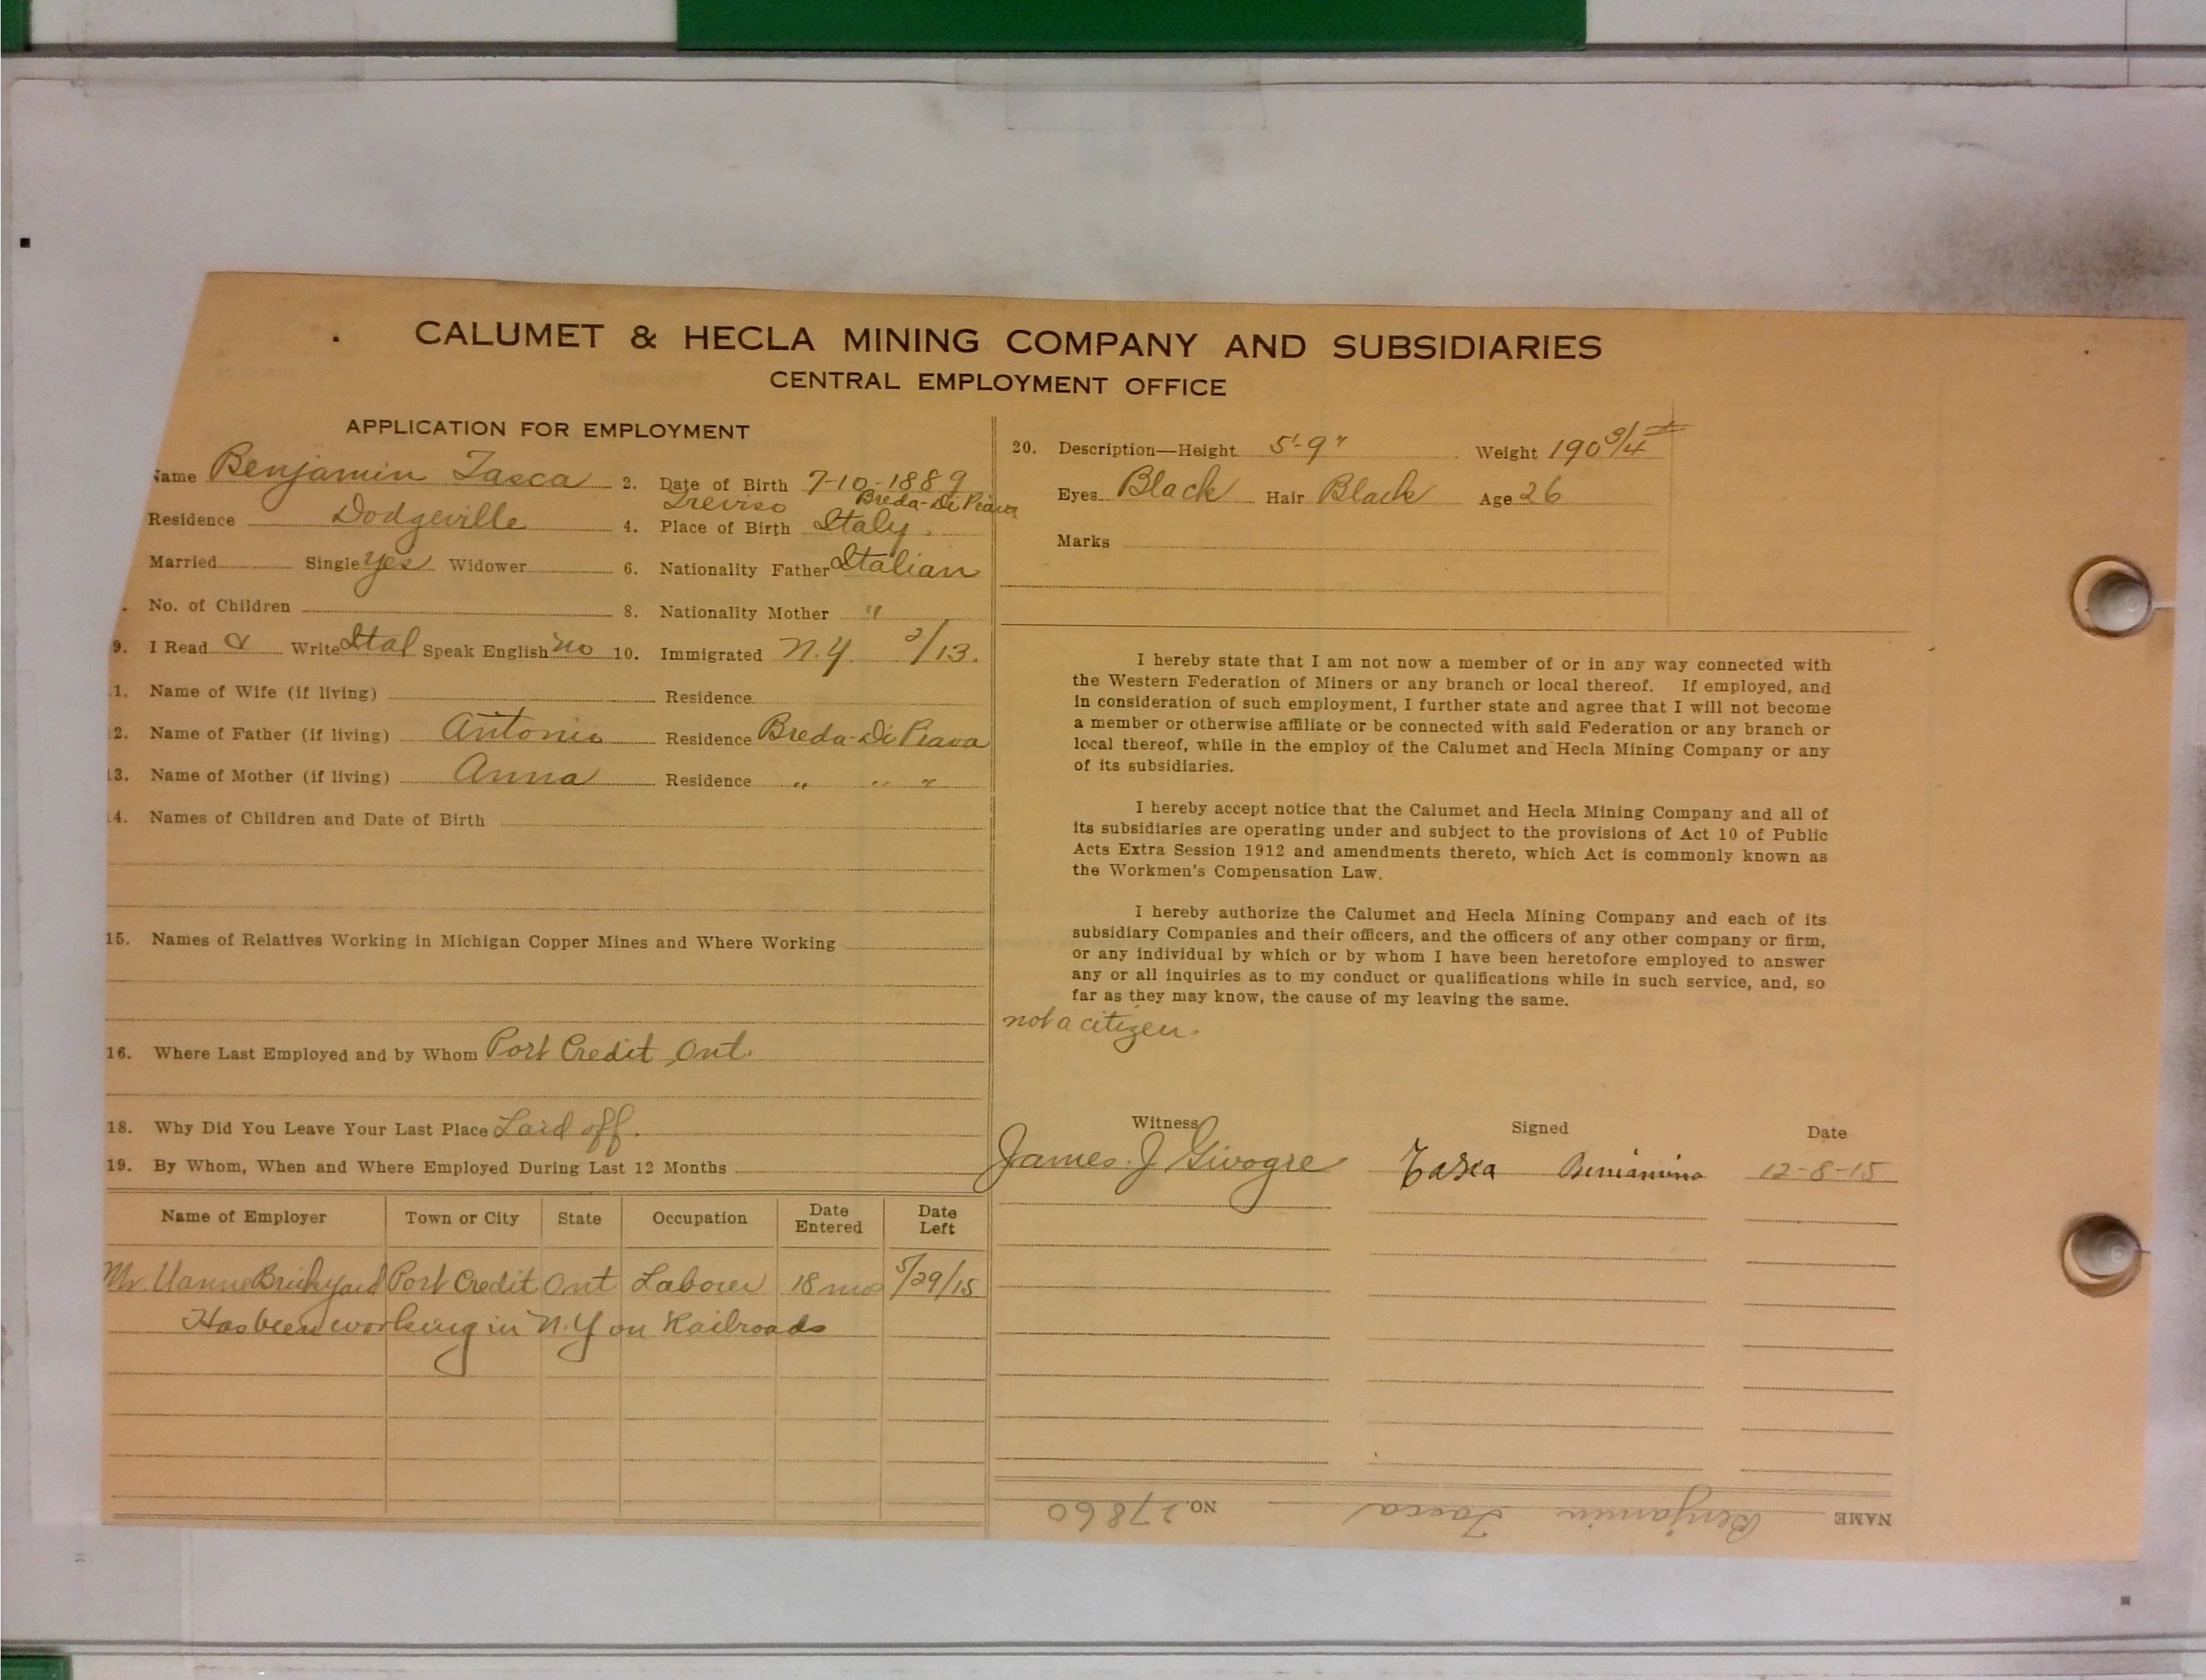 CALUMET & HECLA MINING COMPANY AND SUBSIDIARIES
CENTRAL EMPLOYMENT OFFICE
APPLICATION FOR EMPLOYMENT
Name Benjamin Tasca 2. Date of Birth 7-10-1889
Treviso Breda-Di Piava
Residence Dodgeville 4. Place of Birth Italy.
Married Single yes Widower 6. Nationality Father Italian
No. of Children 8. Nationality Mother "
9. I Read & Write Ital Speak English no 10. Immigrated N.Y. 2/13.
1. Name of Wife (if living) Residence
2. Name of Father (if living) Antonio Residence Breda-Di Piava
13. Name of Mother (if living) Anna Residence " " "
14. Names of Children and Date of Birth
15. Names of Relatives Working in Michigan Copper Mines and Where Working
16. Where Last Employed and by Whom Port Credit, Ont.
18. Why Did You Leave Your Last Place Laid off.
19. By Whom, When and Where Employed During Last 12 Months
Name of Employer Town or City State Occupation Date Entered Date Left
Mr. Brickyard Port Credit Ont Laborer 18 mos 5/29/15
Has been working in N.Y on Railroads
20. Description—Height 5'-9" Weight 190 3/4 #
Eyes Black Hair Black Age 26
Marks
I hereby state that I am not now a member of or in any way connected with
the Western Federation of Miners or any branch or local thereof. If employed, and
in consideration of such employment, I further state and agree that I will not become
a member or otherwise affiliate or be connected with said Federation or any branch or
local thereof, while in the employ of the Calumet and Hecla Mining Company or any
of its subsidiaries.
I hereby accept notice that the Calumet and Hecla Mining Company and all of
its subsidiaries are operating under and subject to the provisions of Act 10 of Public
Acts Extra Session 1912 and amendments thereto, which Act is commonly known as
the Workmen's Compensation Law.
I hereby authorize the Calumet and Hecla Mining Company and each of its
subsidiary Companies and their officers, and the officers of any other company or firm,
or any individual by which or by whom I have been heretofore employed to answer
any or all inquiries as to my conduct or qualifications while in such service, and, so
far as they may know, the cause of my leaving the same.
not a citizen.
Witness Signed Date
James J Givogre Tasca Beniamino 12-8-15
NAME Benjamin Tasca NO. 27860